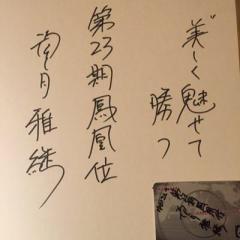 美しく魅せて
勝つ
第23期鳳凰位
望月雅継